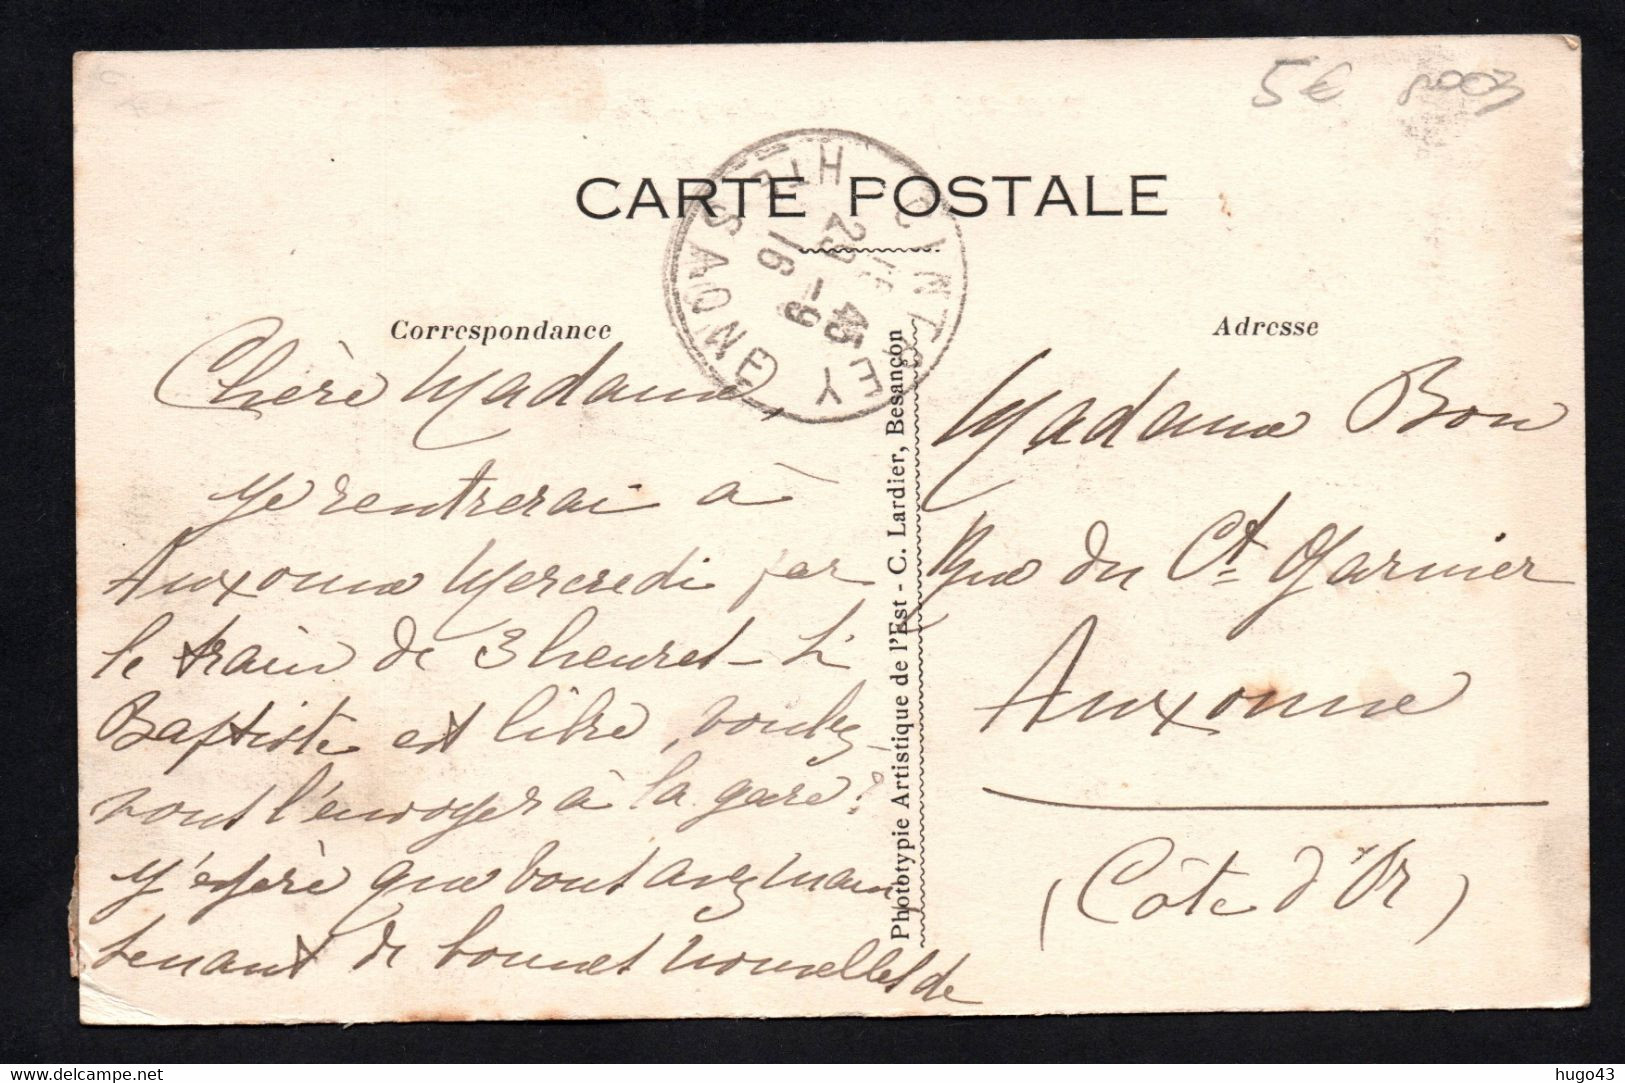 5€
CARTE POSTALE
CINTREY
HTE SAONE
15 45
29 -9
16
Correspondance
Adresse
Chère Madame,
Je rentrerai à
Auxonne Mercredi par
le train de 3 heures - Si
Baptiste est libre, voulez
vous l'envoyer à la gare?
J'espère que vous avez main
tenant de bonnes nouvelles de
Phototypie Artistique de l'Est - C. Lardier, Besançon
Madame Bon
Rue du Ct Garnier
Auxonne
(Côte d'Or)
delcampe.net
hugo43